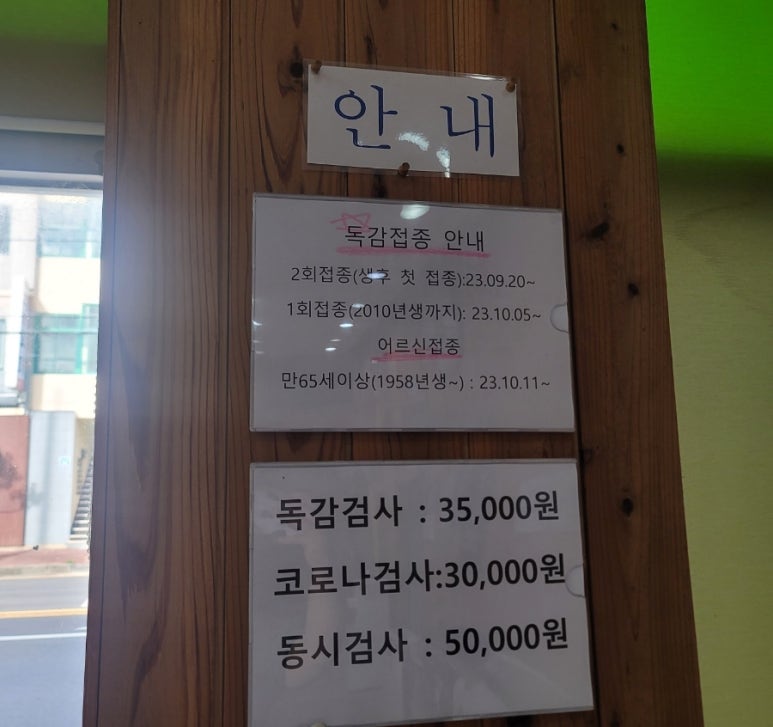 안 내
독감접종 안내
2회접종(생후 첫 접종):23.09.20~
1회접종(2010년생까지): 23.10.05~
어르신접종
만65세이상(1958년생~) : 23.10.11~
독감검사 : 35,000원
코로나검사:30,000원
동시검사 : 50,000원